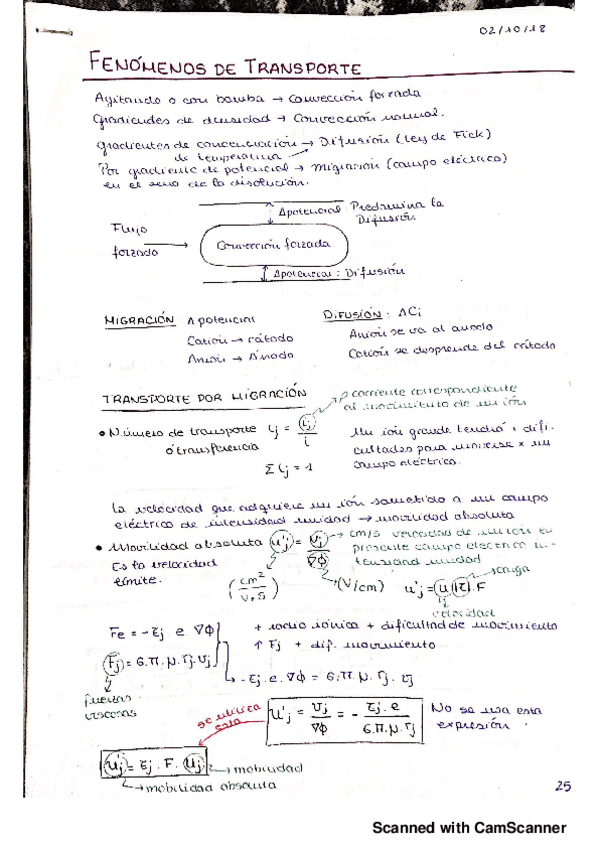 02/10/18
FENÓMENOS DE TRANSPORTE
Agitando o con bomba → Convección forzada
Gradientes de densidad → Convección normal.
Gradientes de concentración → Difusión (Ley de Fick)
de temperatura
Por gradiente de potencial → Migración (campo eléctrico)
en el seno de la disolución.
Δpotencial Predomina la
Difusión
Flujo
forzado
Convección forzada
Δpotencial : Difusión
MIGRACIÓN Δ potencial
Catión → cátodo
Anión → Ánodo
DIFUSIÓN : ΔCi
Anión se va al ánodo
Catión se desprende del cátodo
TRANSPORTE POR MIGRACIÓN
corriente correspondiente
al movimiento de un ión
• Número de transporte tj = ij / i
ó transferencia
Σ tj = 1
Un ión grande tendrá + difi-
cultades para moverse x un
campo eléctrico.
La velocidad que adquiere un ión sometido a un campo
eléctrico de intensidad unidad → movilidad absoluta
• Movilidad absoluta u'j = vj / ∇Φ
cm/s velocidad de un ion en
presente campo eléctrico in-
tensidad unidad
Es la velocidad
límite.
(cm² / V·s)
(V/cm)
u'j = u |z| . F
carga
velocidad
Fe = - zj e ∇Φ
+ radio iónico + dificultad de movimiento
Fj = 6.π.μ.rj.vj
↑ Fj + dif. movimiento
- zj . e . ∇Φ = 6.π.μ.rj . vj
fuerzas
viscosas
se utiliza
esta
u'j = vj / ∇Φ = - zj . e / 6.π.μ.rj
No se usa esta
expresión
u'j = zj . F . uj → mobilidad
→ mobilidad absoluta
25
Scanned with CamScanner